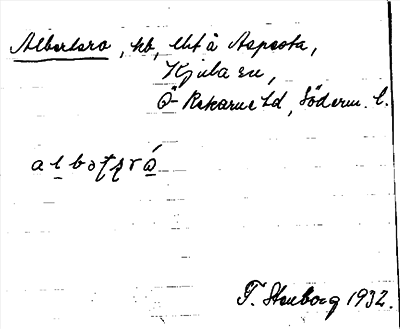 Albertsro, hb, Ut å Aspesta,
Kjula sn,
Ö Rekarne hd, Söderm. l.
albətʂró̱
F. Stenborg 1932.